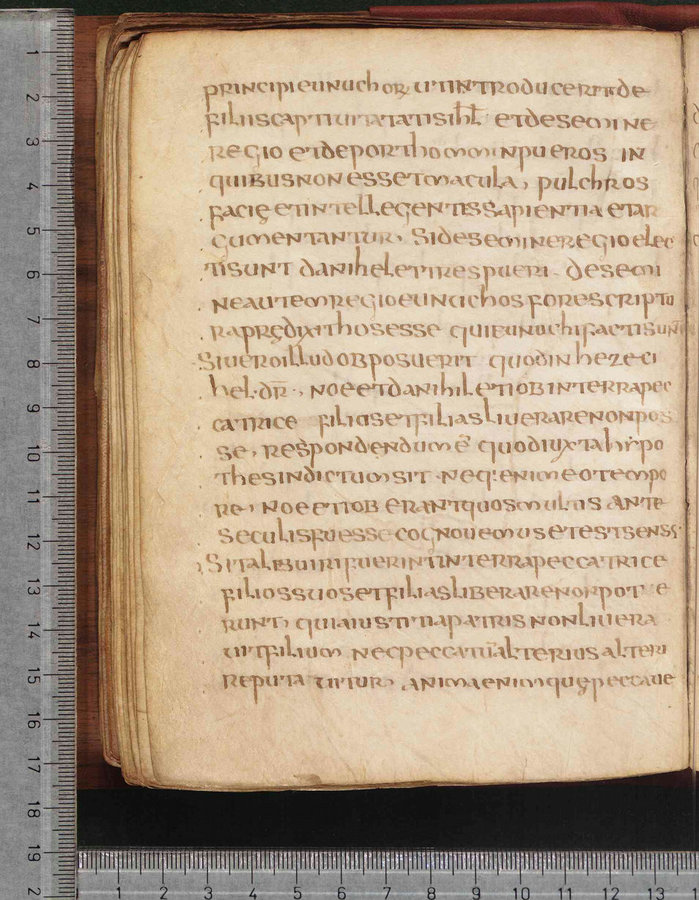 principi eunuchor ut introduceret de
filiis captiuitatis isrł et de semine
regio et de porthommin pueros in
quibus non esset macula, pulchros
facię et intellegentis sapientia et ar
gumentantur, Si de semine regio elec
ti sunt danihel et tres pueri. de semi
ne autem regio eunuchos fore scriptu
ra prędixit hos esse qui eunuchi facti sunt
Si uero illud obposuerit quod in hezeci
hel. dr̄., noe et danihil et iob in terra pec
catrice filios et filias liuerare non pos
se, respondendum ē quod iuxta hypo
thesin dictum sit. neq; enim eo tempo
re, noe et iob erant quos multis ante
seculis fuesse cognouemus et est sens;
Si tali buiri fuerint in terra peccatrice
filios suos et filias liberare non pot e
runt, quia iustitia patris non liuera
uit filium nec peccatū alterius alteri
reputatitur, anima enim quę peccaue